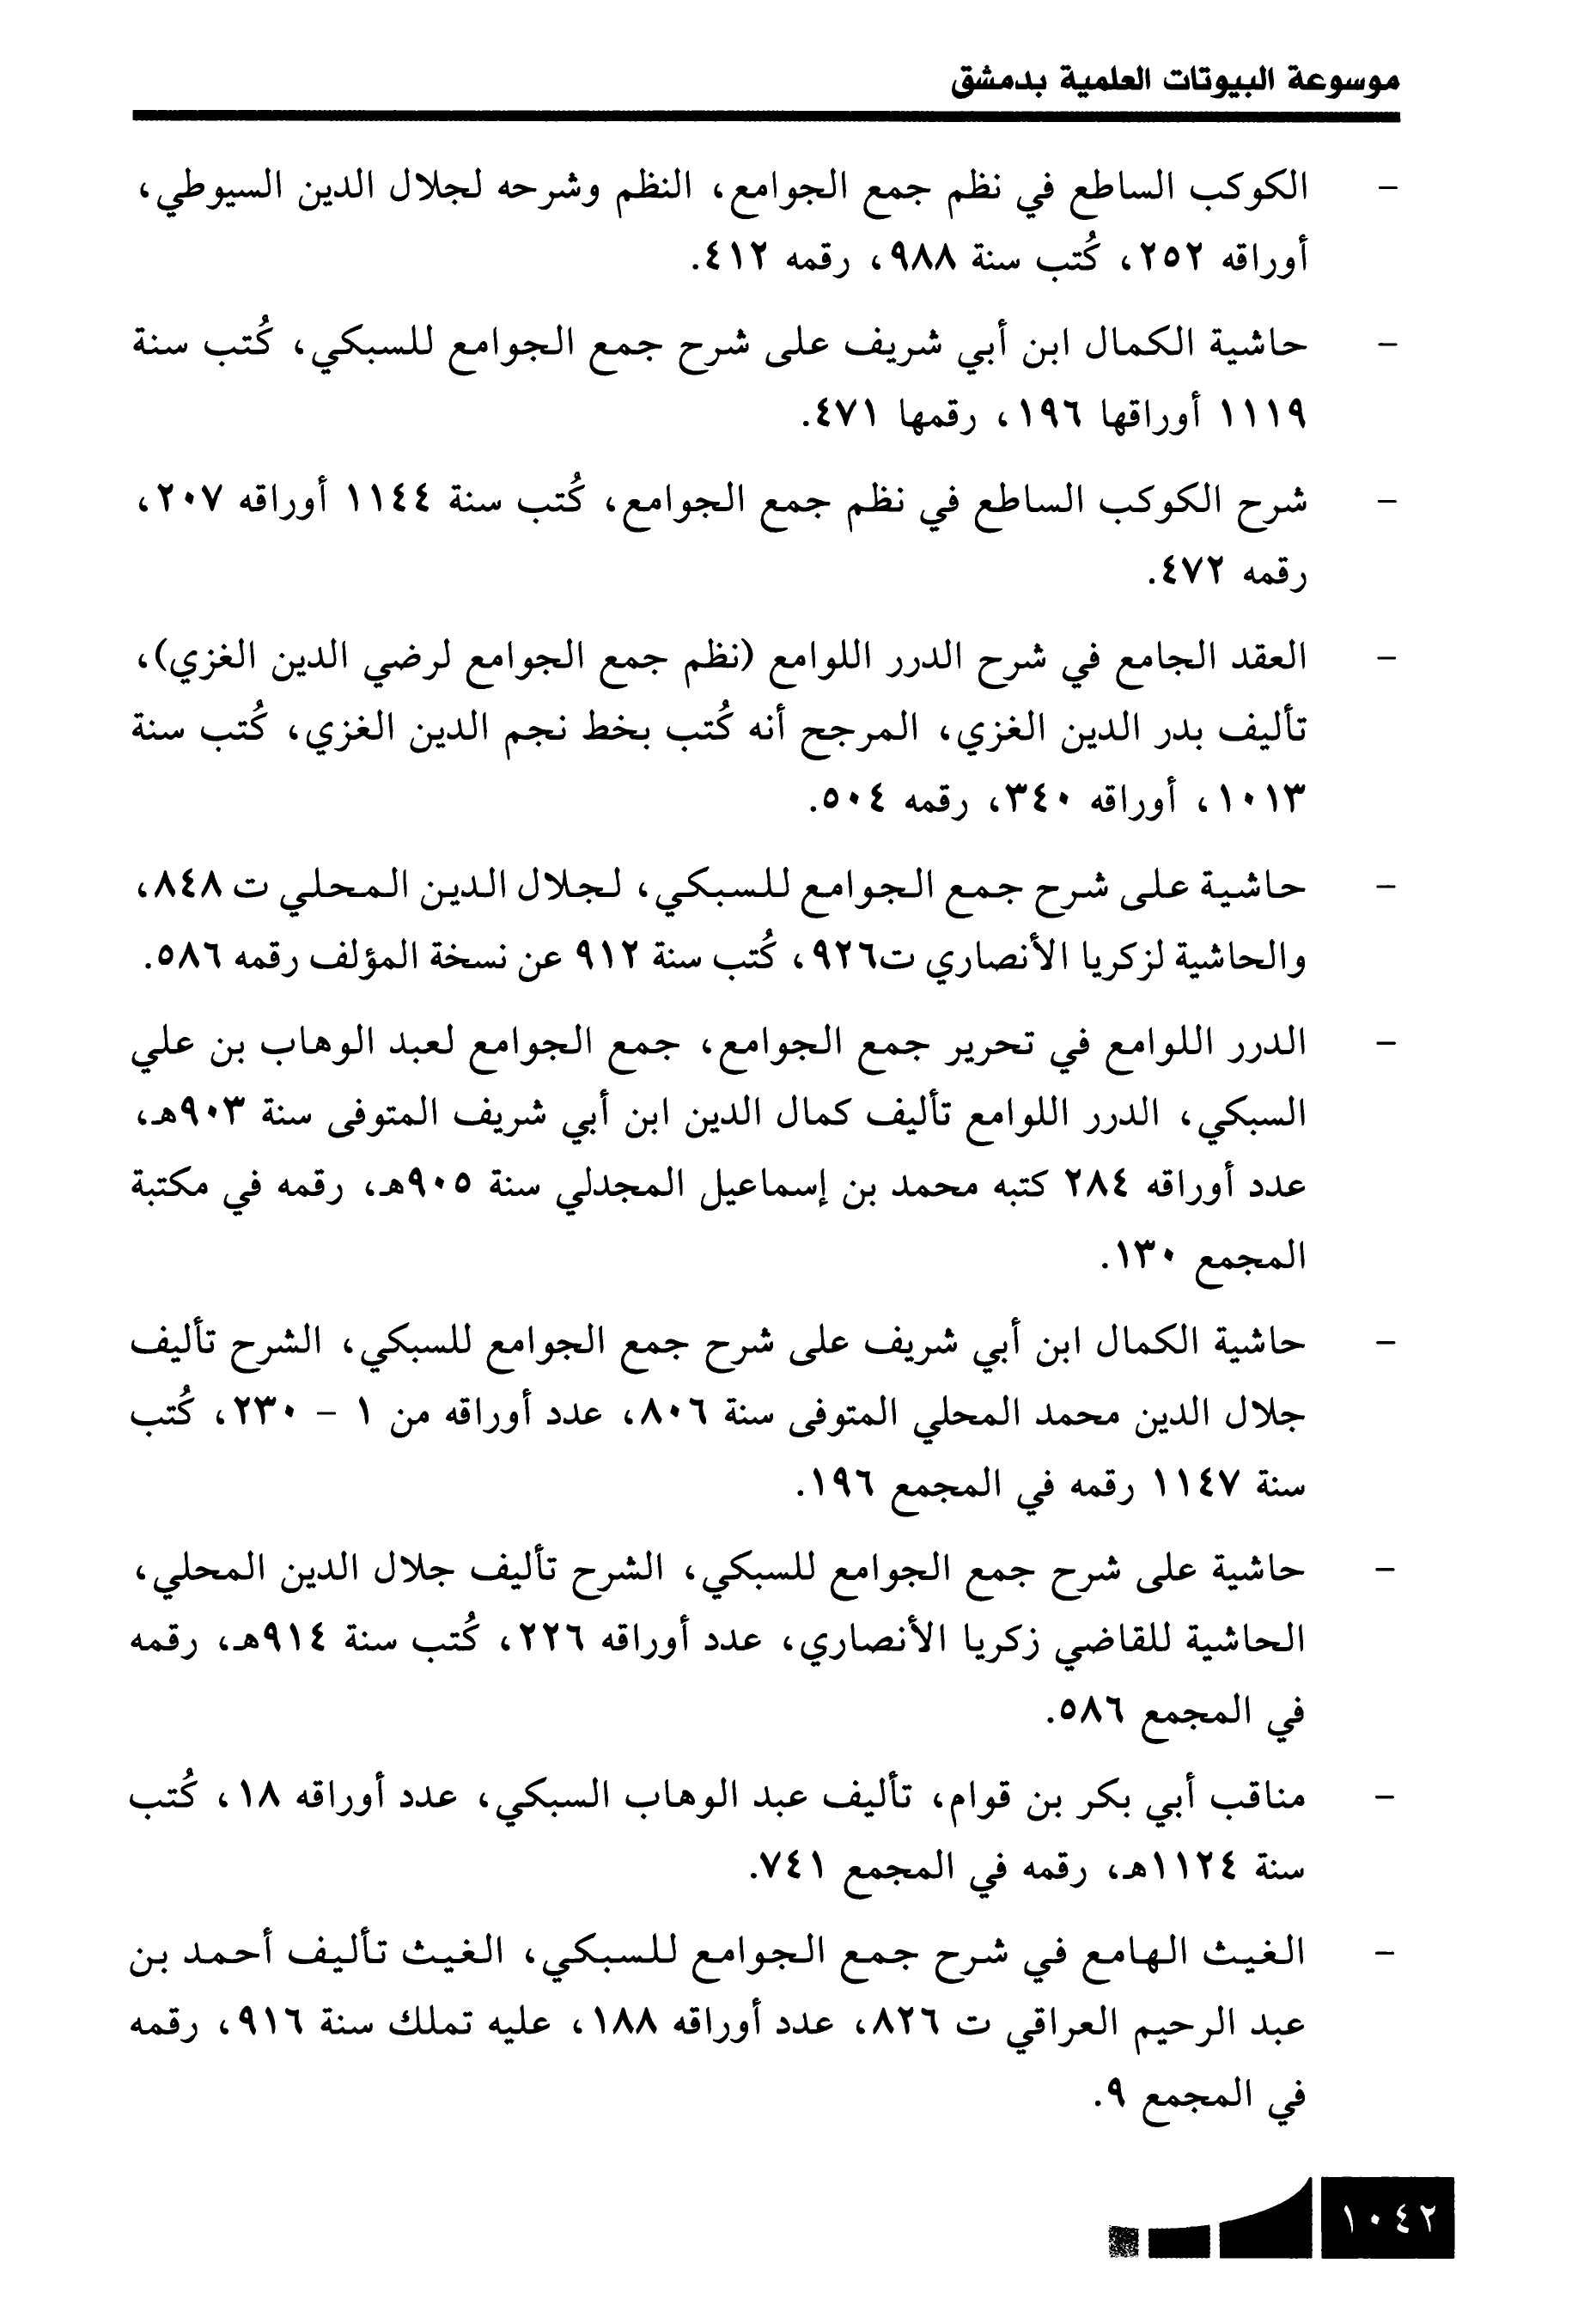 موسوعة البيوتات العلمية بدمشق
- الكوكب الساطع في نظم جمع الجوامع، النظم وشرحه لجلال الدين السيوطي،
أوراقه ٢٥٢، كُتب سنة ٩٨٨، رقمه ٤١٢.
- حاشية الكمال ابن أبي شريف على شرح جمع الجوامع للسبكي، كُتب سنة
١١١٩ أوراقها ١٩٦، رقمها ٤٧١.
- شرح الكوكب الساطع في نظم جمع الجوامع، كُتب سنة ١١٤٤ أوراقه ٢٠٧،
رقمه ٤٧٢.
- العقد الجامع في شرح الدرر اللوامع (نظم جمع الجوامع لرضي الدين الغزي)،
تأليف بدر الدين الغزي، المرجح أنه كُتب بخط نجم الدين الغزي، كُتب سنة
١٠١٣، أوراقه ٣٤٠، رقمه ٥٠٤.
- حاشية على شرح جمع الجوامع للسبكي، لجلال الدين المحلي ت ٨٤٨،
والحاشية لزكريا الأنصاري ت٩٢٦، كُتب سنة ٩١٢ عن نسخة المؤلف رقمه ٥٨٦.
- الدرر اللوامع في تحرير جمع الجوامع، جمع الجوامع لعبد الوهاب بن علي
السبكي، الدرر اللوامع تأليف كمال الدين ابن أبي شريف المتوفى سنة ٩٠٣هـ،
عدد أوراقه ٢٨٤ كتبه محمد بن إسماعيل المجدلي سنة ٩٠٥هـ، رقمه في مكتبة
المجمع ١٣٠.
- حاشية الكمال ابن أبي شريف على شرح جمع الجوامع للسبكي، الشرح تأليف
جلال الدين محمد المحلي المتوفى سنة ٨٠٦، عدد أوراقه من ١ - ٢٣٠، كُتب
سنة ١١٤٧ رقمه في المجمع ١٩٦.
- حاشية على شرح جمع الجوامع للسبكي، الشرح تأليف جلال الدين المحلي،
الحاشية للقاضي زكريا الأنصاري، عدد أوراقه ٢٢٦، كُتب سنة ٩١٤هـ، رقمه
في المجمع ٥٨٦.
- مناقب أبي بكر بن قوام، تأليف عبد الوهاب السبكي، عدد أوراقه ١٨، كُتب
سنة ١١٢٤هـ، رقمه في المجمع ٧٤١.
- الغيث الهامع في شرح جمع الجوامع للسبكي، الغيث تأليف أحمد بن
عبد الرحيم العراقي ت ٨٢٦، عدد أوراقه ١٨٨، عليه تملك سنة ٩١٦، رقمه
في المجمع ٩.
١٠٤٢